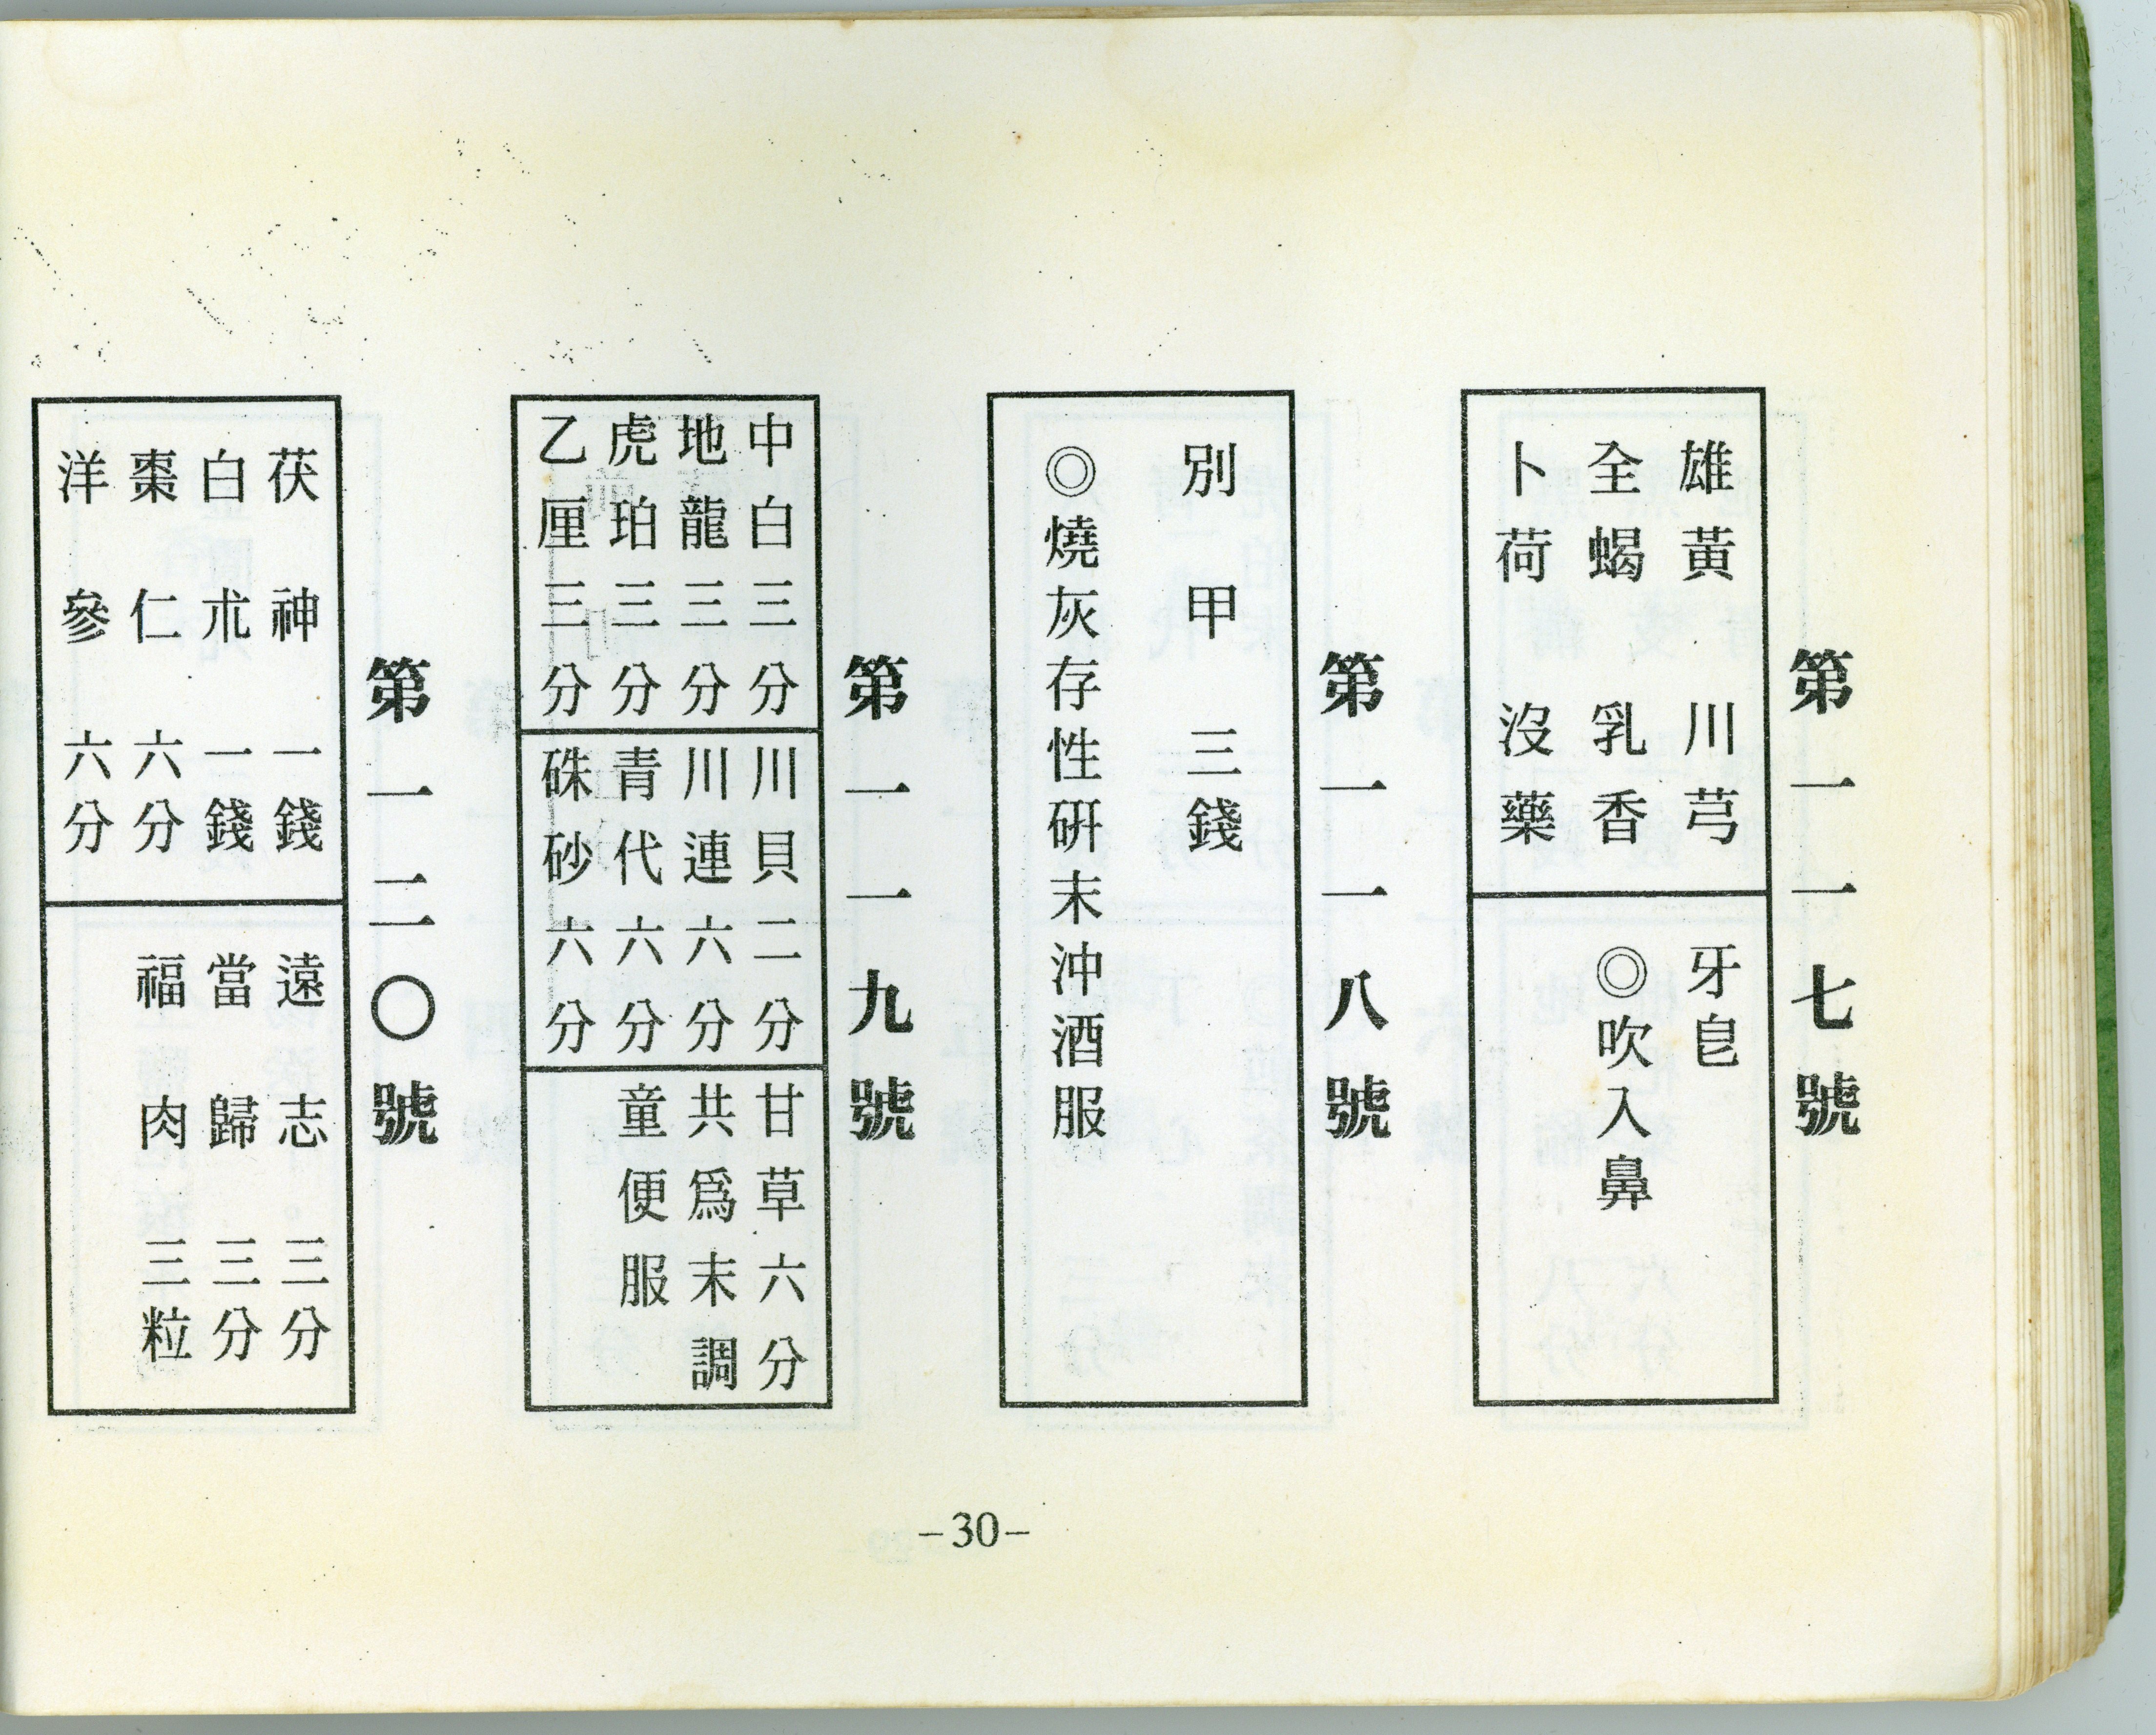 第一一七號
雄黃
全蝎
卜荷
川芎
乳香
沒藥
牙皂
◎吹入鼻
第一一八號
別甲 三錢
◎燒灰存性研末沖酒服
第一一九號
中白三分
地龍三分
虎珀三分
乙厘三分
川貝二分
川連六分
青代六分
硃砂六分
甘草六分
共爲末調
童便服
第一二〇號
茯神 一錢
白朮 一錢
棗仁 六分
洋參 六分
遠志 三分
當歸 三分
福肉 三粒
-30-